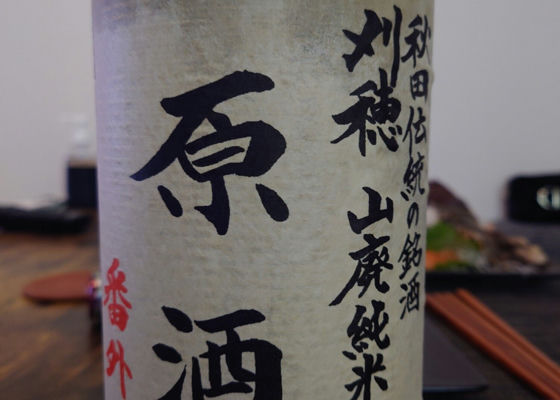 秋田伝統の銘酒
刈穂 山廃純米
原酒
番外